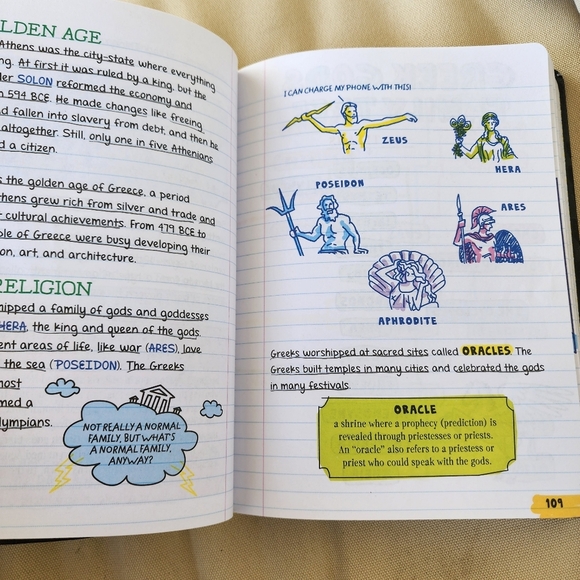 LDEN AGE
Athens was the city-state where everything
ng. At first it was ruled by a king, but the
der SOLON reformed the economy and
n 594 BCE. He made changes like freeing
d fallen into slavery from debt, and then he
altogether. Still, only one in five Athenians
d a citizen.
s the golden age of Greece, a period
thens grew rich from silver and trade and
r cultural achievements. From 479 BCE to
ple of Greece were busy developing their
on, art, and architecture.
RELIGION
hipped a family of gods and goddesses
HERA, the king and queen of the gods.
ent areas of life, like war (ARES), love
the sea (POSEIDON). The Greeks
most
med a
lympians.
NOT REALLY A NORMAL
FAMILY, BUT WHAT'S
A NORMAL FAMILY,
ANYWAY?
I CAN CHARGE MY PHONE WITH THIS!
ZEUS
HERA
POSEIDON
ARES
APHRODITE
Greeks worshipped at sacred sites called ORACLES. The
Greeks built temples in many cities and celebrated the gods
in many festivals.
ORACLE
a shrine where a prophecy (prediction) is
revealed through priestesses or priests.
An "oracle" also refers to a priestess or
priest who could speak with the gods.
109